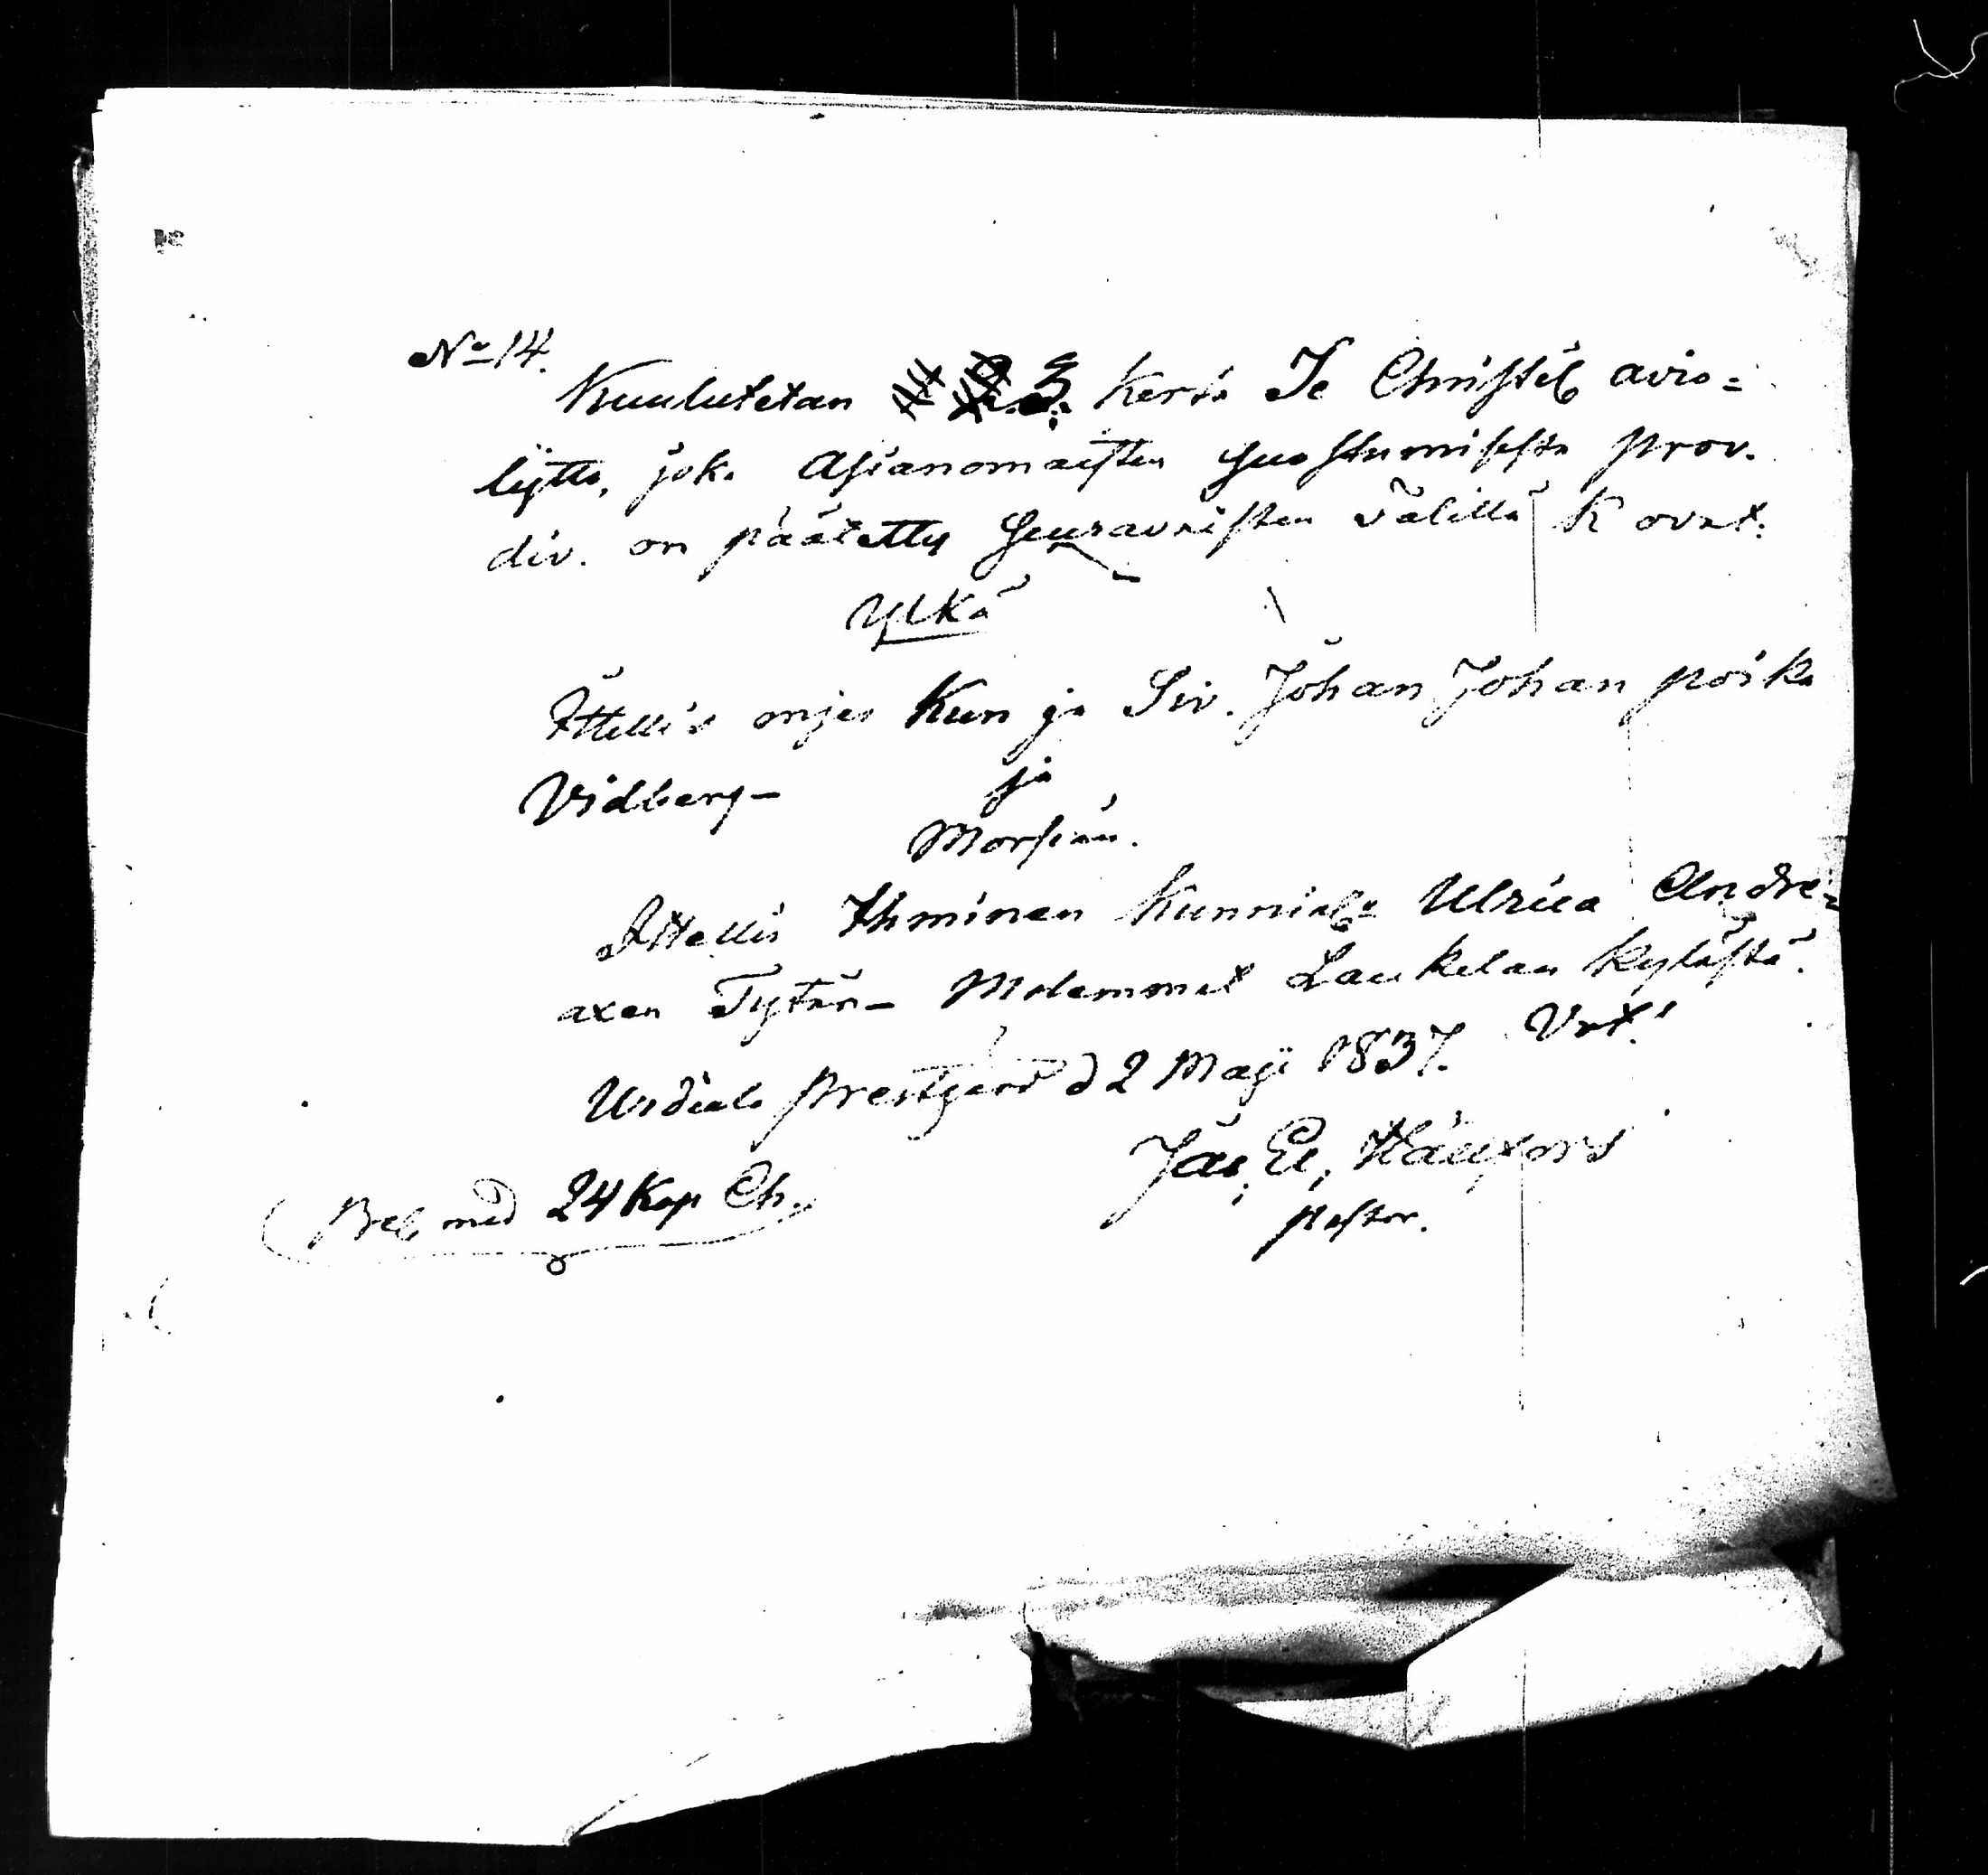 No 14.
Kuulutetan 3. Kerta Te Christel avio=
lijtto, joka Asianomaisten Suostumisesta prov.
div. on päätetty Seuravaisten välillä K ovat.
Ylkä
Ittellis mjes Kun ja Siv. Johan Johan poika
Vidberg- ja
Morsian.
Ittellis Ihminen Kunnial. Ulrica Andre=
axen Tytär- Molemmat Laukelan kylästä.
Urdiala Prestgård d 2 Maji 1837. Vrt.
Jac. El,
pastor.
Bel med 24 Kop Ch.